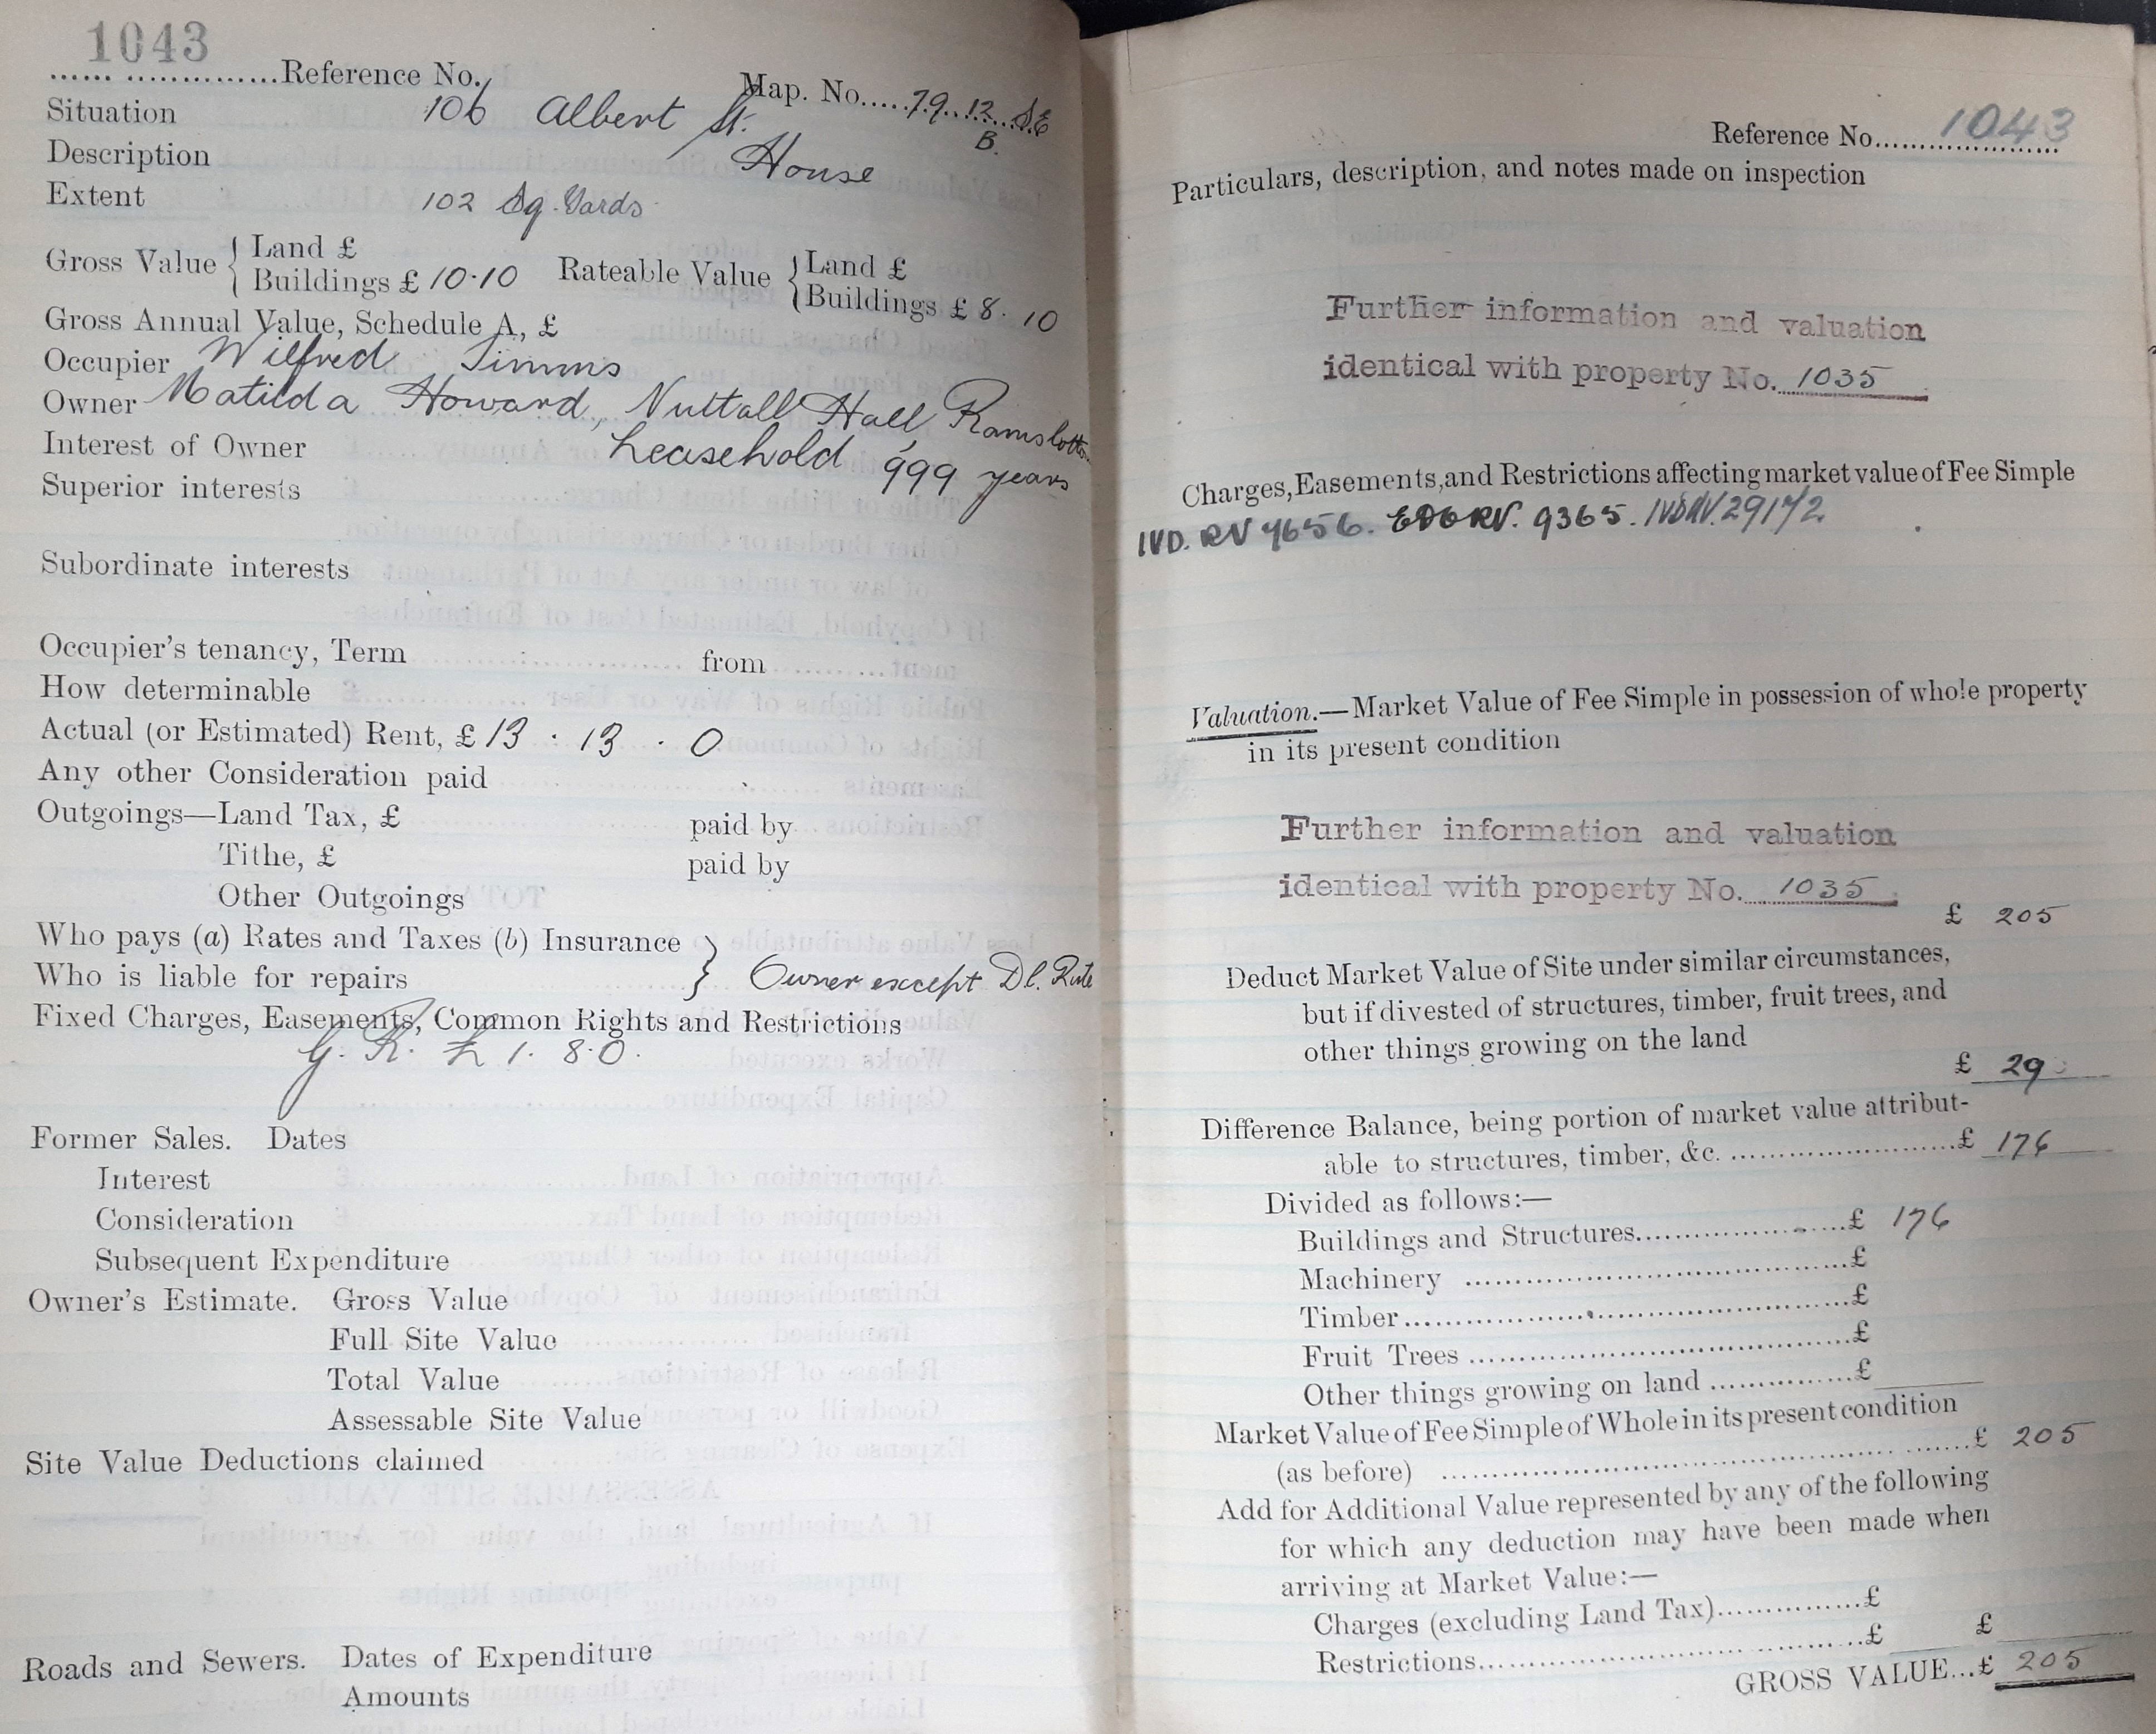 1043
Reference No. Map. No. 79. 12 SE
B.
Situation 106 Albert St.
Description House
Extent 102 Sq. Yards
Gross Value { Land £ Rateable Value { Land £
Buildings £ 10·10 Buildings £ 8. 10
Gross Annual Value, Schedule A, £
Occupier Wilfred Simms
Owner Matilda Howard, Nuttall Hall, Ramsbottom
Interest of Owner Leasehold, 999 years
Superior interests
Subordinate interests
Occupier's tenancy, Term from
How determinable
Actual (or Estimated) Rent, £ 13 . 13 . 0
Any other Consideration paid
Outgoings—Land Tax, £ paid by
Tithe, £ paid by
Other Outgoings
Who pays (a) Rates and Taxes (b) Insurance }
Who is liable for repairs } Owner except Dl. Rate
Fixed Charges, Easements, Common Rights and Restrictions
G. R. £ 1. 8. 0.
Former Sales. Dates
Interest
Consideration
Subsequent Expenditure
Owner's Estimate. Gross Value
Full Site Value
Total Value
Assessable Site Value
Site Value Deductions claimed
Roads and Sewers. Dates of Expenditure
Amounts
Reference No. 1043
Particulars, description, and notes made on inspection
Further information and valuation
identical with property No. 1035
Charges, Easements, and Restrictions affecting market value of Fee Simple
IVD. RV 4656. RV. 9365.
Valuation.—Market Value of Fee Simple in possession of whole property
in its present condition
Further information and valuation
identical with property No. 1035
£ 205
Deduct Market Value of Site under similar circumstances,
but if divested of structures, timber, fruit trees, and
other things growing on the land
£ 29
Difference Balance, being portion of market value attribut-
able to structures, timber, &c. £ 176
Divided as follows:—
Buildings and Structures £ 176
Machinery £
Timber £
Fruit Trees £
Other things growing on land £
Market Value of Fee Simple of Whole in its present condition
(as before) £ 205
Add for Additional Value represented by any of the following
for which any deduction may have been made when
arriving at Market Value:—
Charges (excluding Land Tax) £
Restrictions £ £
GROSS VALUE...£ 205